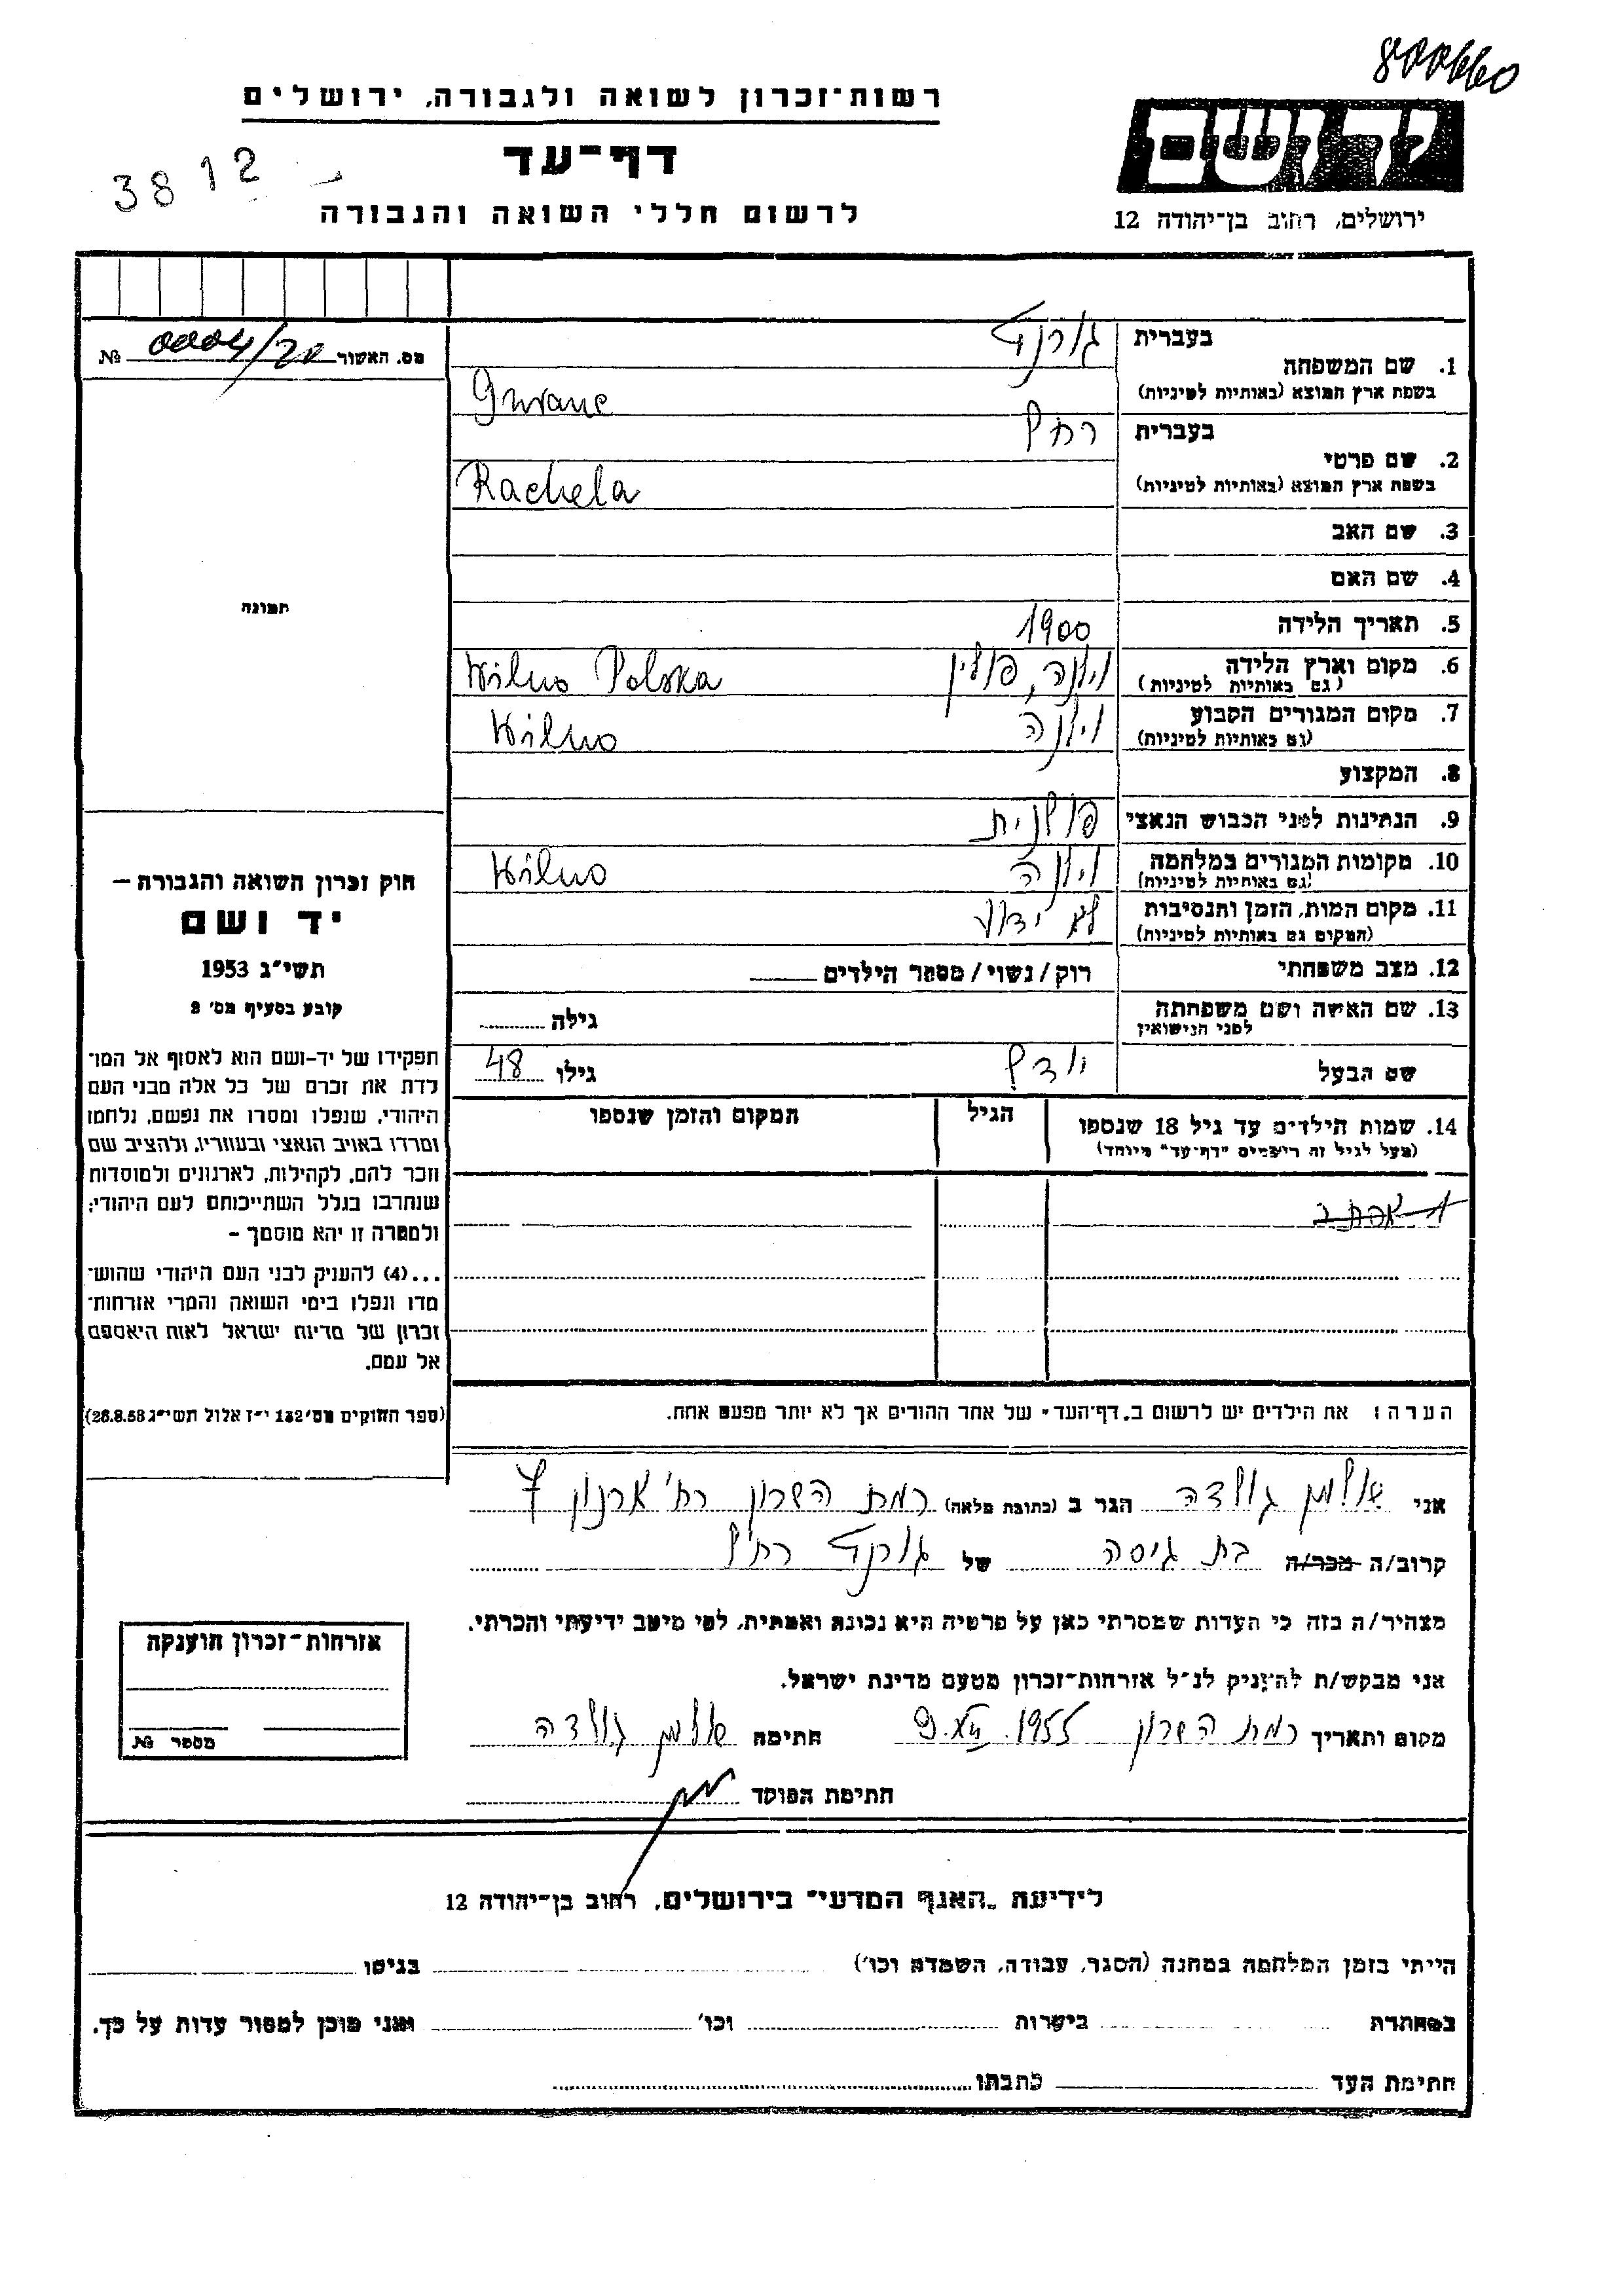 800660
רשות־זכרון לשואה ולגבורה, ירושלים
דף־עד
3812
לרשום חללי השואה והגבורה
יד ושם
ירושלים, רחוב בן־יהודה 12
מס. האשור №
1. שם המשפחה
בעברית
בשפת ארץ המוצא (באותיות לטיניות)
2. שם פרטי
בעברית רחל
בשפת ארץ המוצא (באותיות לטיניות) Rachela
3. שם האב
4. שם האם
5. תאריך הלידה 1900
6. מקום וארץ הלידה וילנה, פולין Wilno Polska
(גם באותיות לטיניות)
7. מקום המגורים הקבוע וילנה Wilno
(גם באותיות לטיניות)
8. המקצוע
9. הנתינות לפני הכבוש הנאצי פולנית
10. מקומות המגורים במלחמה וילנה Wilno
(גם באותיות לטיניות)
11. מקום המות, הזמן והנסיבות לא ידוע
(המקום גם באותיות לטיניות)
12. מצב משפחתי רוק/נשוי/מספר הילדים
13. שם האשה ושם משפחתה גילה
לפני הנישואין
שם הבעל גילו 48
14. שמות הילדים עד גיל 18 שנספו הגיל המקום והזמן שנספו
(מעל לגיל זה רושמים "דף־עד" מיוחד)
תמונה
חוק זכרון השואה והגבורה –
יד ושם
תשי"ג 1953
קובע בסעיף מס' 2
תפקידו של יד-ושם הוא לאסוף אל המו־
לדת את זכרם של כל אלה מבני העם
היהודי, שנפלו ומסרו את נפשם, נלחמו
ומרדו באויב הנאצי ובעוזריו, ולהציב שם
וזכר להם, לקהילות, לארגונים ולמוסדות
שנחרבו בגלל השתייכותם לעם היהודי;
ולמטרה זו יהא מוסמך –
...(4) להעניק לבני העם היהודי שהוש־
מדו ונפלו בימי השואה והמרי אזרחות־
זכרון של מדינת ישראל לאות היאספם
אל עמם.
(ספר החוקים מס' 132 י"ז אלול תשי"ג 28.8.58)
הערה: את הילדים יש לרשום ב"דף־העד" של אחד ההורים אך לא יותר מפעם אחת.
אני שולמן גולדה הגר ב (כתובת מלאה) רמת השרון רח' ארנון 7
קרוב/ה מכר/ה בת גיסה של רחל
מצהיר/ה בזה כי העדות שמסרתי כאן על פרטיה היא נכונה ואמתית, לפי מיטב ידיעתי והכרתי.
אני מבקש/ת להעניק לנ"ל אזרחות־זכרון מטעם מדינת ישראל.
מקום ותאריך רמת השרון 9.XII.1955 חתימה שולמן גולדה
חתימת הפוקד
אזרחות־זכרון הוענקה
מספר №
לידיעת "האגף המדעי" בירושלים, רחוב בן־יהודה 12
הייתי בזמן המלחמה במחנה (הסגר, עבודה, השמדה וכו') בגיטו
במחתרת ביערות וכו' ואני מוכן למסור עדות על כך.
חתימת העד כתבתו